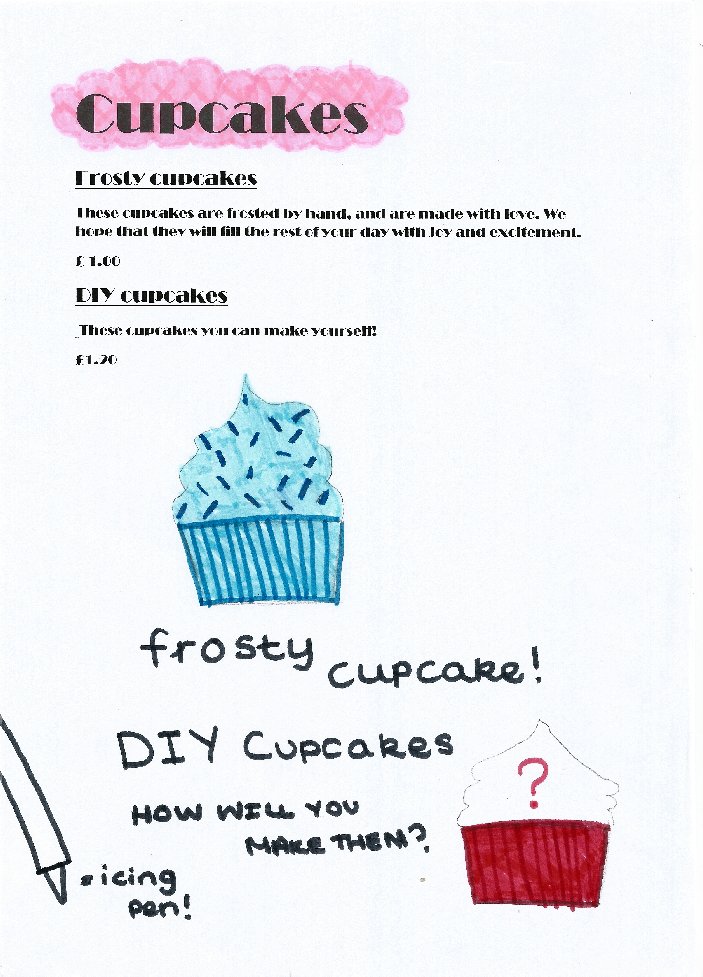 Cupcakes
Frosty cupcakes
These cupcakes are frosted by hand, and are made with love. We
hope that they will fill the rest of your day with joy and excitement.
£ 1.00
DIY cupcakes
These cupcakes you can make yourself!
£1.20
frosty cupcake!
DIY Cupcakes
?
HOW WILL YOU
MAKE THEM?
icing
pen!